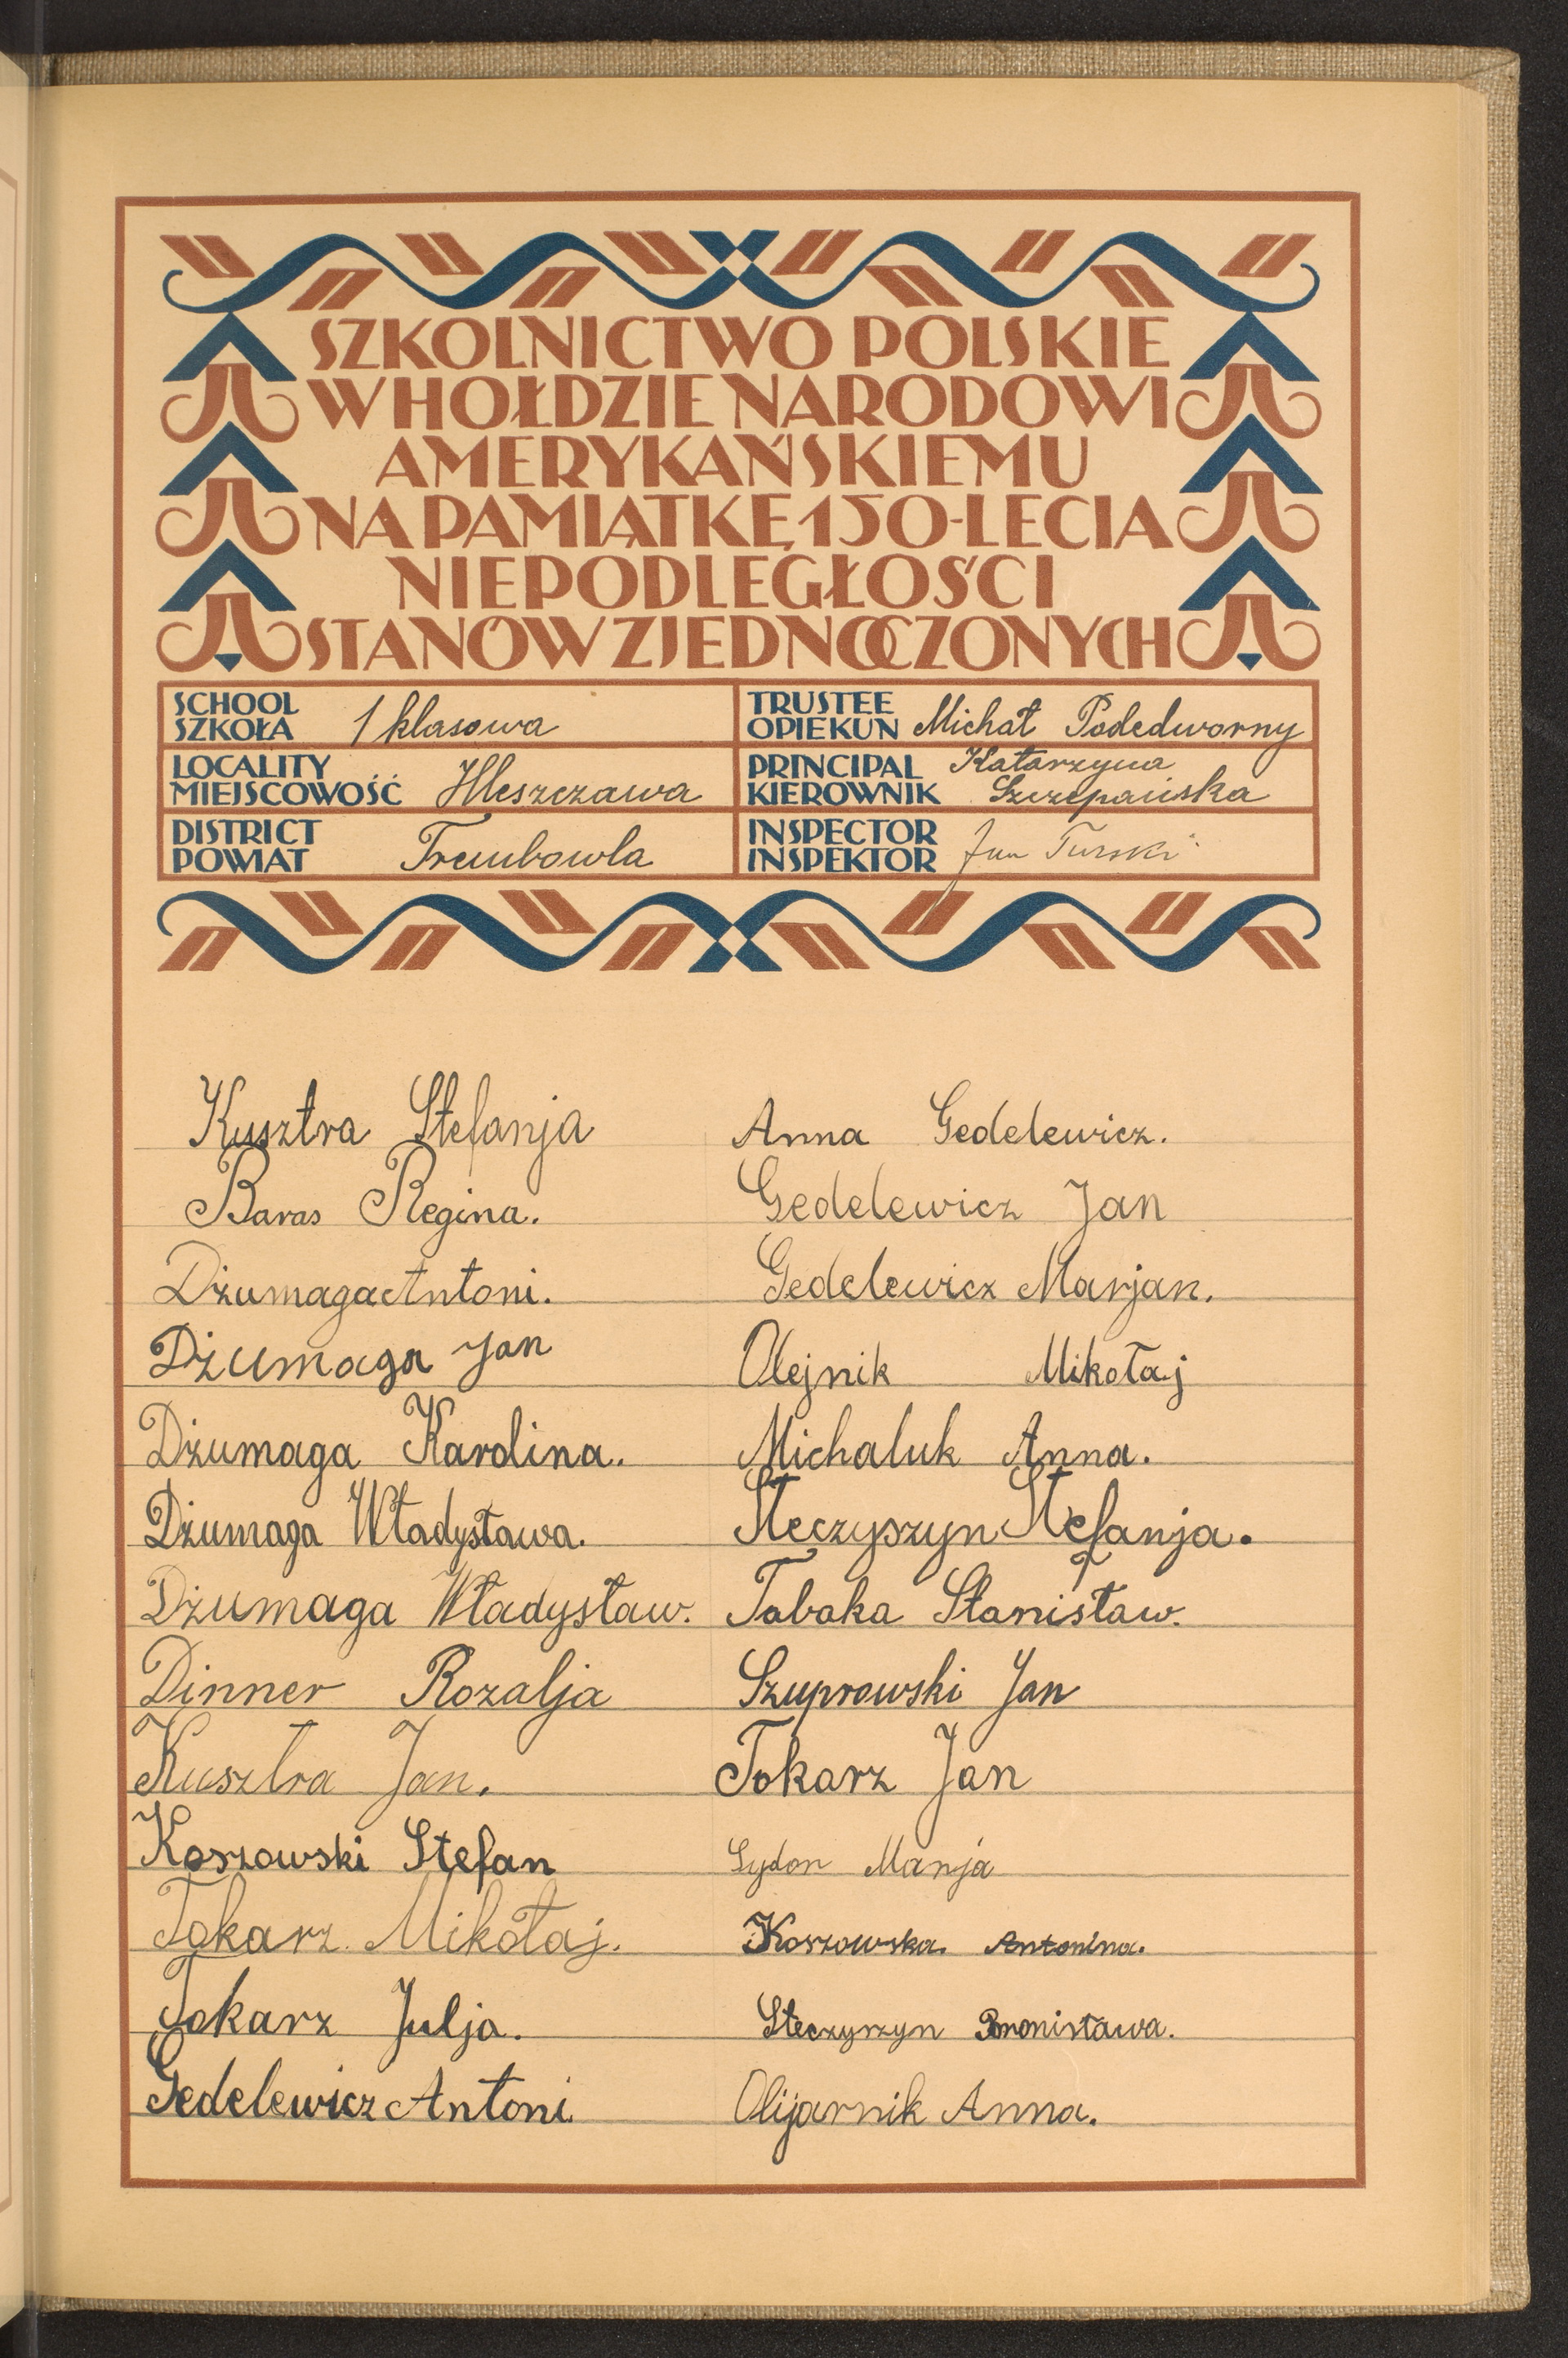 SZKOLNICTWO POLSKIE
W HOŁDZIE NARODOWI
AMERYKAŃSKIEMU
NA PAMIĄTKĘ 150-LECIA
NIEPODLEGŁOŚCI
STANÓW ZJEDNOCZONYCH
SCHOOL
SZKOŁA 1 klasowa
TRUSTEE
OPIEKUN Michał Podedworny
LOCALITY
MIEJSCOWOŚĆ Hleszczawa
PRINCIPAL Katarzyna
KIEROWNIK Szczepańska
DISTRICT
POWIAT Trembowla
INSPECTOR
INSPEKTOR Jan Turski
Kusztra Stefanja
Baras Regina.
Dżumaga Antoni.
Dżumaga Jan
Dżumaga Karolina.
Dżumaga Władysława.
Dżumaga Władysław.
Dinner Rozalja
Kusztra Jan.
Koszowski Stefan
Tokarz Mikołaj.
Tokarz Julja.
Gedelewicz Antoni
Anna Gedelewicz.
Gedelewicz Jan
Gedelewicz Marjan.
Olejnik Mikołaj
Michaluk Anna.
Steczyszyn Stefanja.
Tabaka Stanisław.
Szuprowski Jan
Tokarz Jan
Sydon Marja
Koszowska Antonina.
Steczyszyn Bronisława.
Olijarnik Anna.